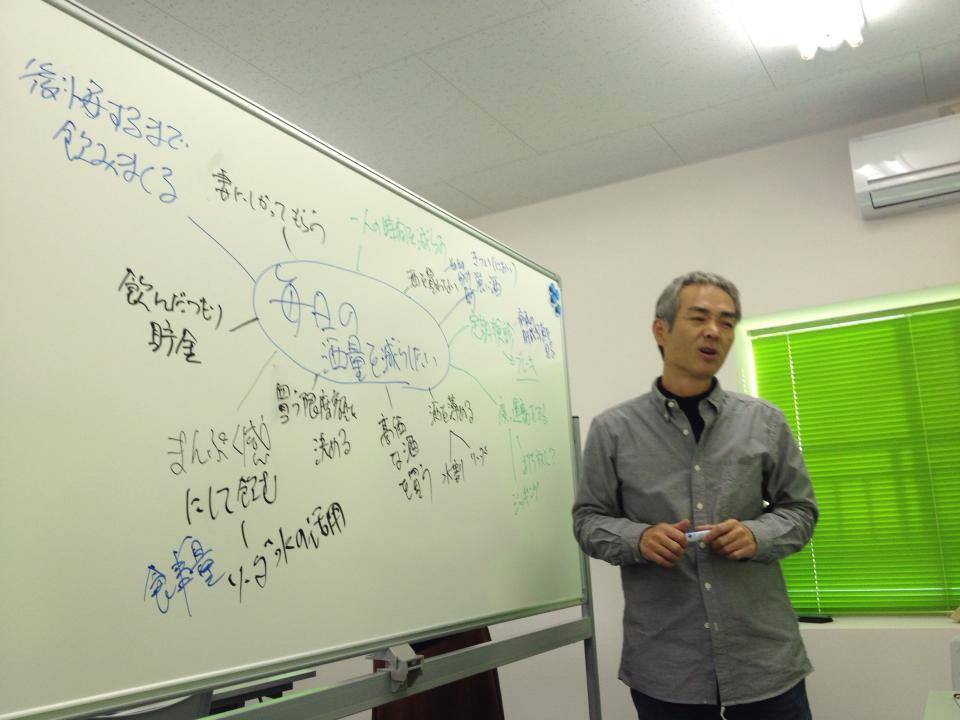 後悔するまで
飲みまくる
妻にしかってもらう
一人の時間を減らす
酒を買わない
強い酒
飲んだつもり
貯金
毎日の
酒量を減らしたい
定期検診
買う限度額を
決める
高価
な酒
を買う
酒を薄める
水割
ソーダ
まんぷく感
にして飲む
食事量
ソーダ水の活用
ジョギング